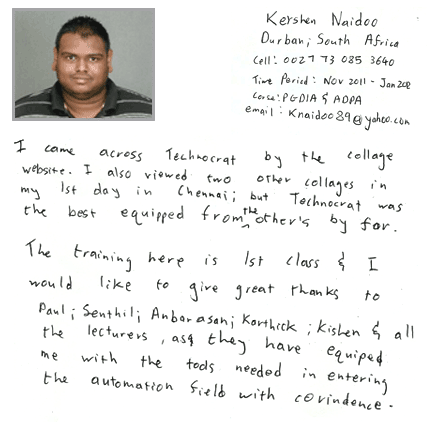 Kershen Naidoo
Durban; South Africa
Cell: 0027 73 085 3640
Time Period: Nov 2011 - Jan 2012
Corse: PGDIA & ADPA
email: Knaidoo89@yahoo.com
I came across Technocrat by the collage
website. I also viewed two other collages in
my 1st day in Chennai; but Technocrat was
the best equipped from the other's by far.
The training here is 1st class & I
would like to give great thanks to
Paul; Senthil; Anbarasan; Karthick; Kishen & all
the lecturers, as they have equiped
me with the tools needed in entering
the automation field with covindence.